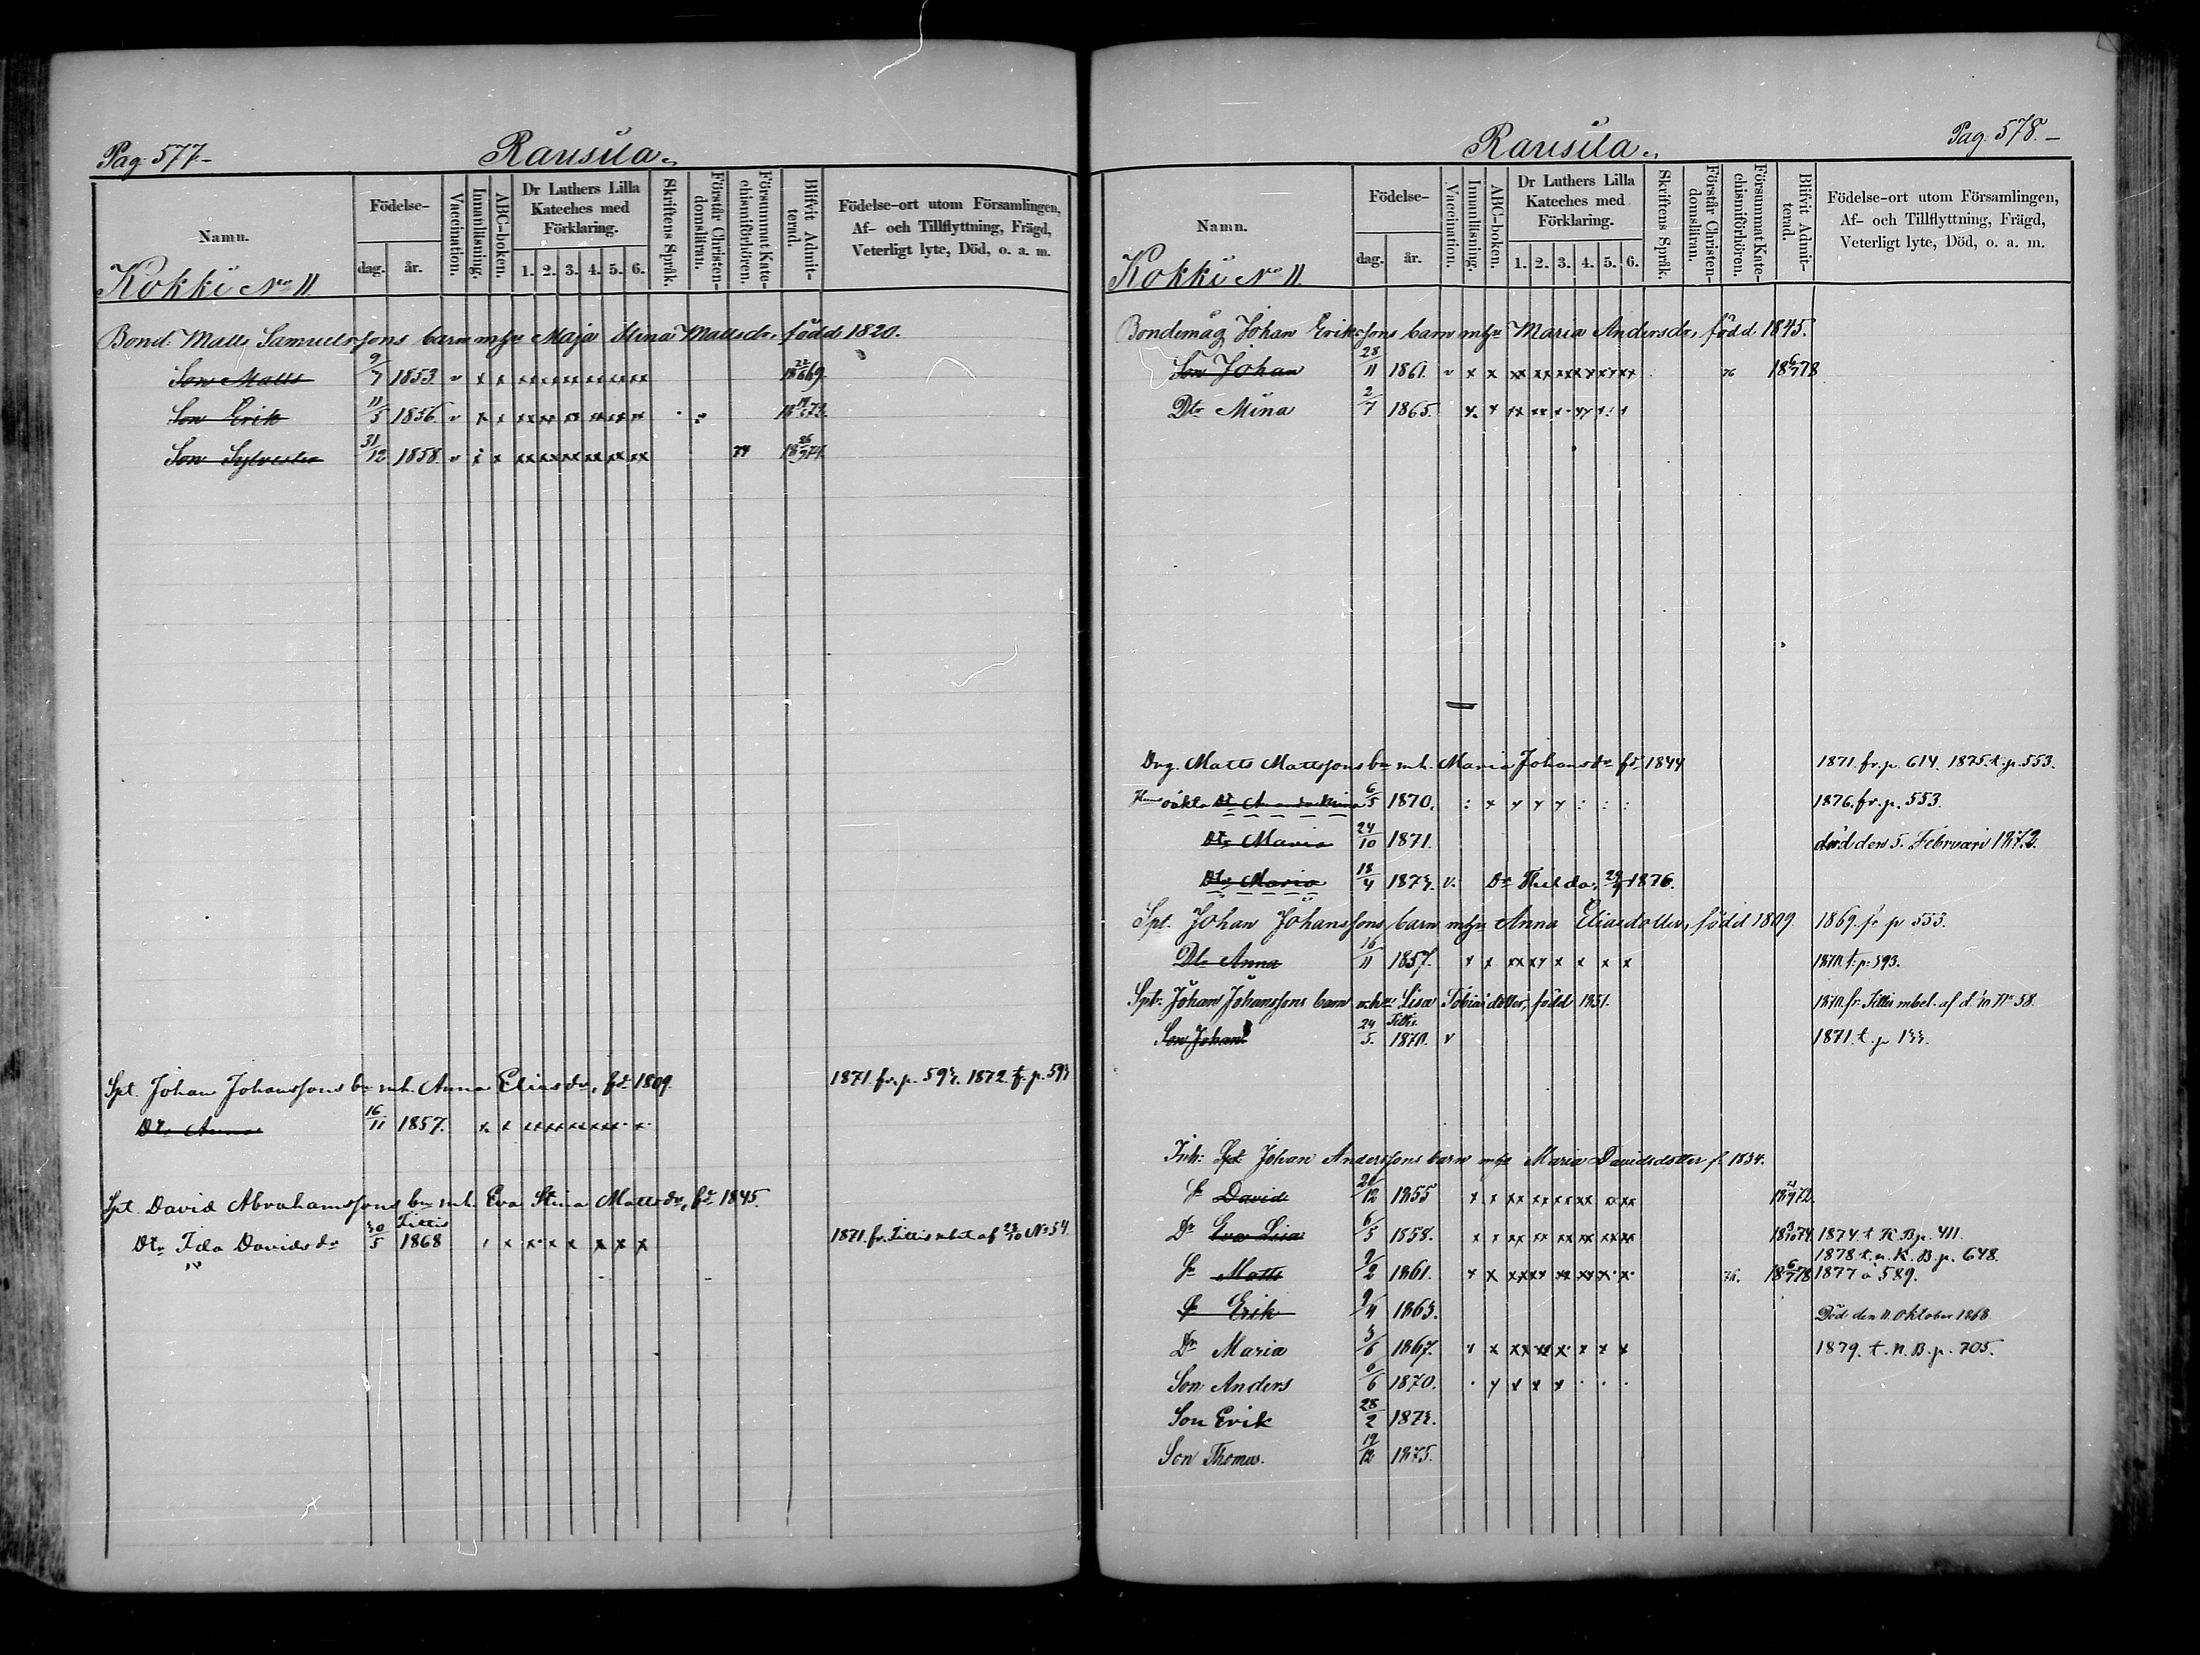 Pag. 577.-
Ransila.
Namn.
Födelse-
dag.
år.
Vaccination.
Innanläsning.
ABC-boken.
Dr Luthers Lilla
Kateches med
Förklaring.
1. 2. 3. 4. 5. 6.
Skriftens Språk.
Förstår Christen-
domsläran.
Försummat Kate-
chismiförhören.
Blifvit Admit-
terad.
Födelse-ort utom Församlingen,
Af- och Tillflyttning, Frägd,
Veterligt lyte, Död, o. a. m.
Kokki No 11.
Bond. Matts Samuelssons barn m hu Maja Stina Mattsdr, född 1820.
Son Matts 9/7 1853. v x x
Son Erik 11/5 1856. v x x
Son Sylvester 31/12 1858. v x x
Spt. Johan Johanssons bn m h. Anna Eliasdr, fd 1809. 1871. fr. p. 593. 1872. t. p. 593
Dtr Anna 16/11 1857. x x
Spt. David Abrahamssons bn m h. Eva Stina Mattsdr, fd 1845.
Tittis
Dtr Fida Davidsdr 30/5 1868 1871. fr. Tittis m bet af 23/10 No 54.
Pag. 578.-
Ransila.
Namn.
Födelse-
dag.
år.
Vaccination.
Innanläsning.
ABC-boken.
Dr Luthers Lilla
Kateches med
Förklaring.
1. 2. 3. 4. 5. 6.
Skriftens Språk.
Förstår Christen-
domsläran.
Försummat Kate-
chismiförhören.
Blifvit Admit-
terad.
Födelse-ort utom Församlingen,
Af- och Tillflyttning, Frägd,
Veterligt lyte, Död, o. a. m.
Kokki No 11.
Bondemåg Johan Erikssons barn m hu Maria Andersdr, född 1845.
Son Johan 28/11 1861. v x x 76 18 6/7 78
Dtr Mina 2/7 1865.
Drg. Matts Mattssons bn m h. Maria Johansdr fd 1844 1871. fr. p. 614. 1875. t. p. 553.
oäkta Dtr Amanda Mina 6/5 1870. 1876. fr. p. 553.
Dtr Maria 24/10 1871. död den 5. Februari 1872.
Dtr Maria 18/4 1873. v. Dr Hulda, 1876.
Spt. Johan Johanssons barn m hu Anna Eliasdotter, född 1809. 1869. fr p 553.
Dtr Anna 16/11 1857. 1870. t. p. 593.
Spt. Johan Johanssons barn m hu Lisa Tobiasdotter, född 1851. 1870. fr. Tittis m bet. af No 58.
Tittis
Son Johan 24/5 1870. v 1871. t. p 133.
Inh. Spt Johan Anderssons barn m hu Maria Davidsdotter f. 1834.
Sn David 1855
Dr Eva Lisa 6/5 1858. 1874. t K B p. 411.
1878 t. n. K. B p. 648.
Sn Matts 9/2 1861. 76. 18 6/7 78 1877 å 589.
Sn Erik 9/4 1863. Död den 11. Oktober 1868.
Dr Maria 3/6 1867. 1879. t. n. B. p. 705.
Son Anders 6/6 1870.
Son Erik 28/2 1873.
Son Thomas. 19/12 1875.